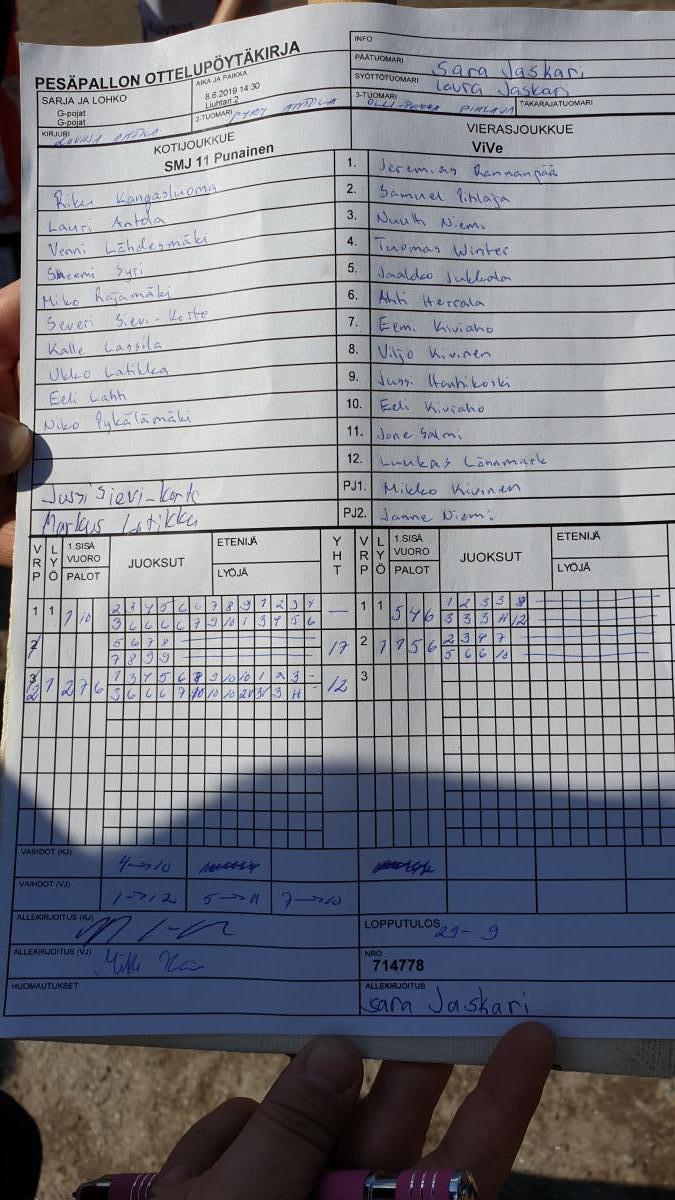 PESÄPALLON OTTELUPÖYTÄKIRJA
INFO
PÄÄTUOMARI Sara Jaskari
SYÖTTÖTUOMARI Laura Jaskari
SARJA JA LOHKO
G-pojat
G-pojat
AIKA JA PAIKKA
8.6.2019 14:30
Liuhtari 2
KIRJURI Antola
2-TUOMARI Pyry Antola
3-TUOMARI Olli-Pekka Pihlaja
TAKARAJATUOMARI
KOTIJOUKKUE
SMJ 11 Punainen
VIERASJOUKKUE
ViVe
Riku Kangasluoma 1. Jeremias Rannanpää
Lauri Antola 2. Samuel Pihlaja
Venni Lähdesmäki 3. Nuutti Niemi
Syri 4. Tuomas Winter
Miko Rajamäki 5. Jaakko Jukkola
Severi Sievi-Korte 6. Ahti Herrala
Kalle Lassila 7. Eemi Kiviaho
Ukko Latikka 8. Viljo Kivinen
Eeli Lahti 9. Jussi Hautikoski
Niko Pykälämäki 10. Eeli Kiviaho
11. Jone Salmi
12. Luukas Lönnmark
Jussi Sievi-Korte PJ1. Mikko Kivinen
Markus Latikka PJ2. Janne Niemi
VRP LYÖ 1.SISÄ VUORO PALOT JUOKSUT ETENIJÄ LYÖJÄ YHT VRP LYÖ 1.SISÄ VUORO PALOT JUOKSUT ETENIJÄ LYÖJÄ
1 1 1 10 2 3 4 5 6 6 7 8 9 1 2 3 4 — 1 1 5 4 6 1 2 3 3 9
3 6 6 6 6 7 9 10 1 3 4 5 6 3 3 3 4 12
2 5 6 7 8 17 2 1 1 5 6 2 3 4 7
7 8 9 9 5 6 6 10
3 1 2 7 6 1 3 4 5 6 8 9 10 10 1 2 3 - 12 3
3 6 6 6 7 10 10 10
VAIHDOT (KJ) 4→10
VAIHDOT (VJ) 1→12 5→11 7→10
ALLEKIRJOITUS (KJ)
LOPPUTULOS 29-9
ALLEKIRJOITUS (VJ)
NRO
714778
HUOMAUTUKSET
ALLEKIRJOITUS
Sara Jaskari